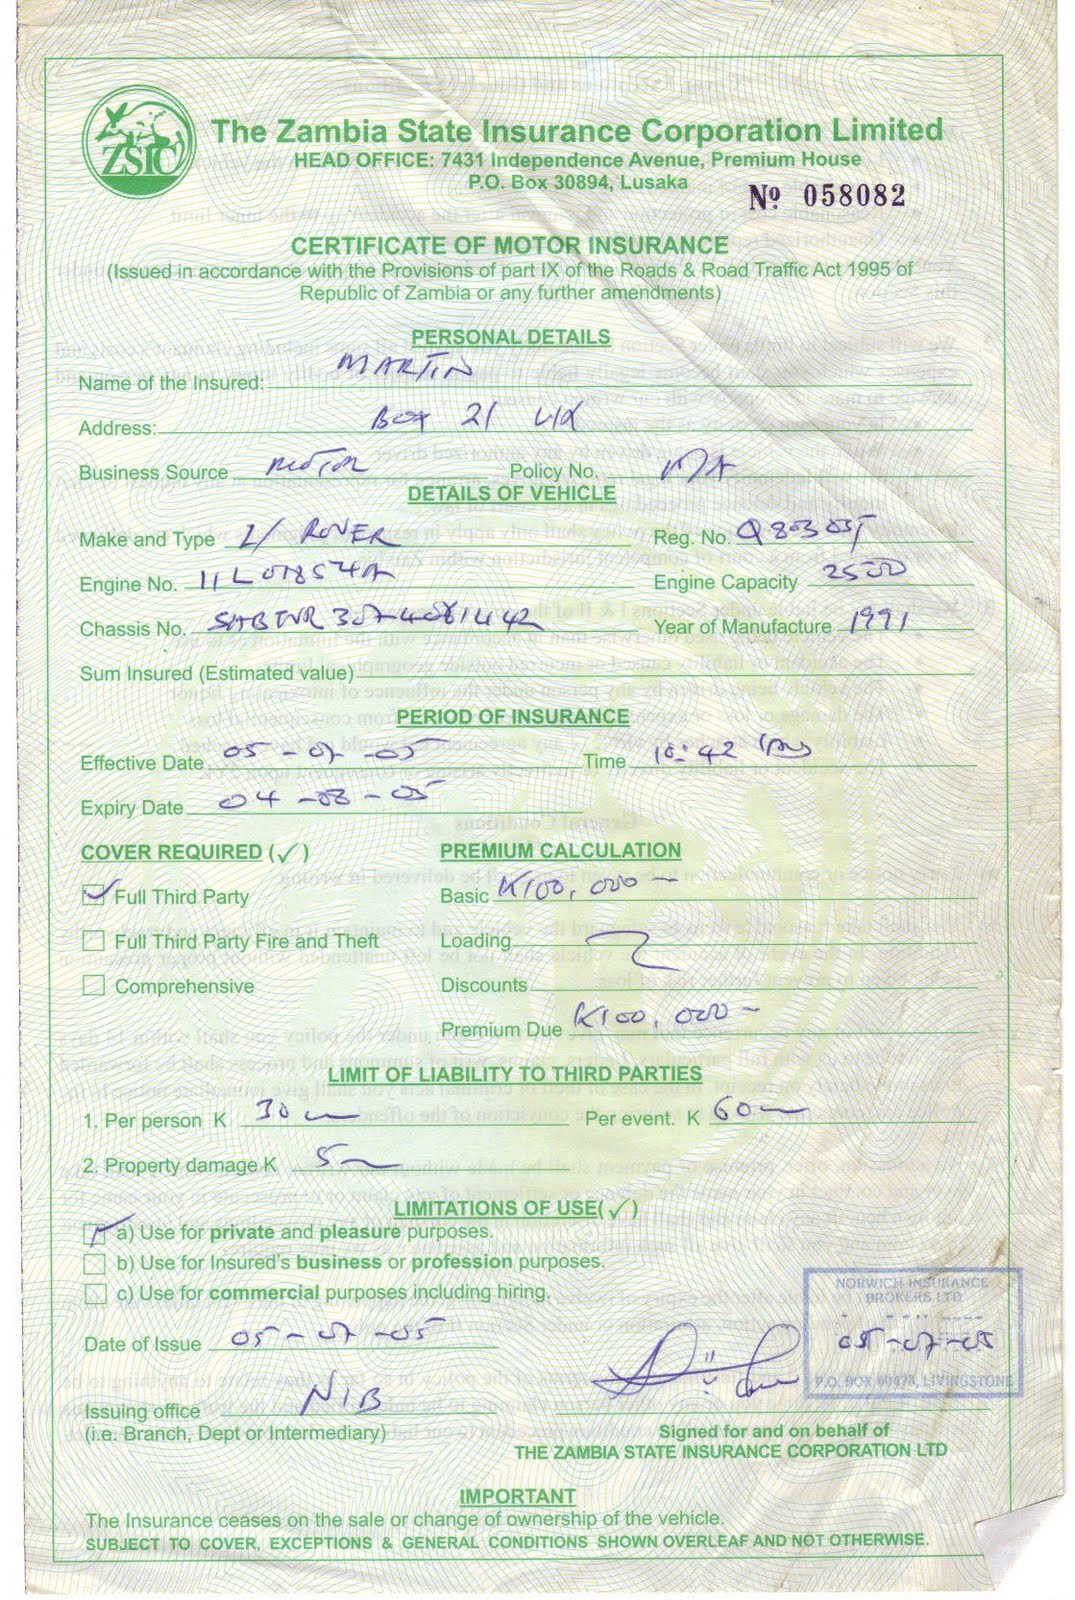 ZSIC
The Zambia State Insurance Corporation Limited
HEAD OFFICE: 7431 Independence Avenue, Premium House
P.O. Box 30894, Lusaka
No. 058082
CERTIFICATE OF MOTOR INSURANCE
(Issued in accordance with the Provisions of part IX of the Roads & Road Traffic Act 1995 of
Republic of Zambia or any further amendments)
PERSONAL DETAILS
Name of the Insured: MARTIN
Address: BOX 21
Business Source MOTOR Policy No.
DETAILS OF VEHICLE
Make and Type L/ ROVER Reg. No.
Engine No. 11L01854A Engine Capacity 2500
Chassis No. Year of Manufacture 1991
Sum Insured (Estimated value)
PERIOD OF INSURANCE
Effective Date 05-07-05 Time 10:42
Expiry Date 04-08-05
COVER REQUIRED (✓) PREMIUM CALCULATION
Full Third Party Basic K100,000
Full Third Party Fire and Theft Loading
Comprehensive Discounts
Premium Due K100,000
LIMIT OF LIABILITY TO THIRD PARTIES
1. Per person K 30 Per event. K 60
2. Property damage K 5
LIMITATIONS OF USE(✓)
a) Use for private and pleasure purposes.
b) Use for Insured's business or profession purposes.
c) Use for commercial purposes including hiring.
NORWICH INSURANCE
BROKERS LTD
05-07-05
P.O. BOX 60478, LIVINGSTONE
Date of Issue 05-07-05
Issuing office NIB
(i.e. Branch, Dept or Intermediary)
Signed for and on behalf of
THE ZAMBIA STATE INSURANCE CORPORATION LTD
IMPORTANT
The Insurance ceases on the sale or change of ownership of the vehicle.
SUBJECT TO COVER, EXCEPTIONS & GENERAL CONDITIONS SHOWN OVERLEAF AND NOT OTHERWISE.